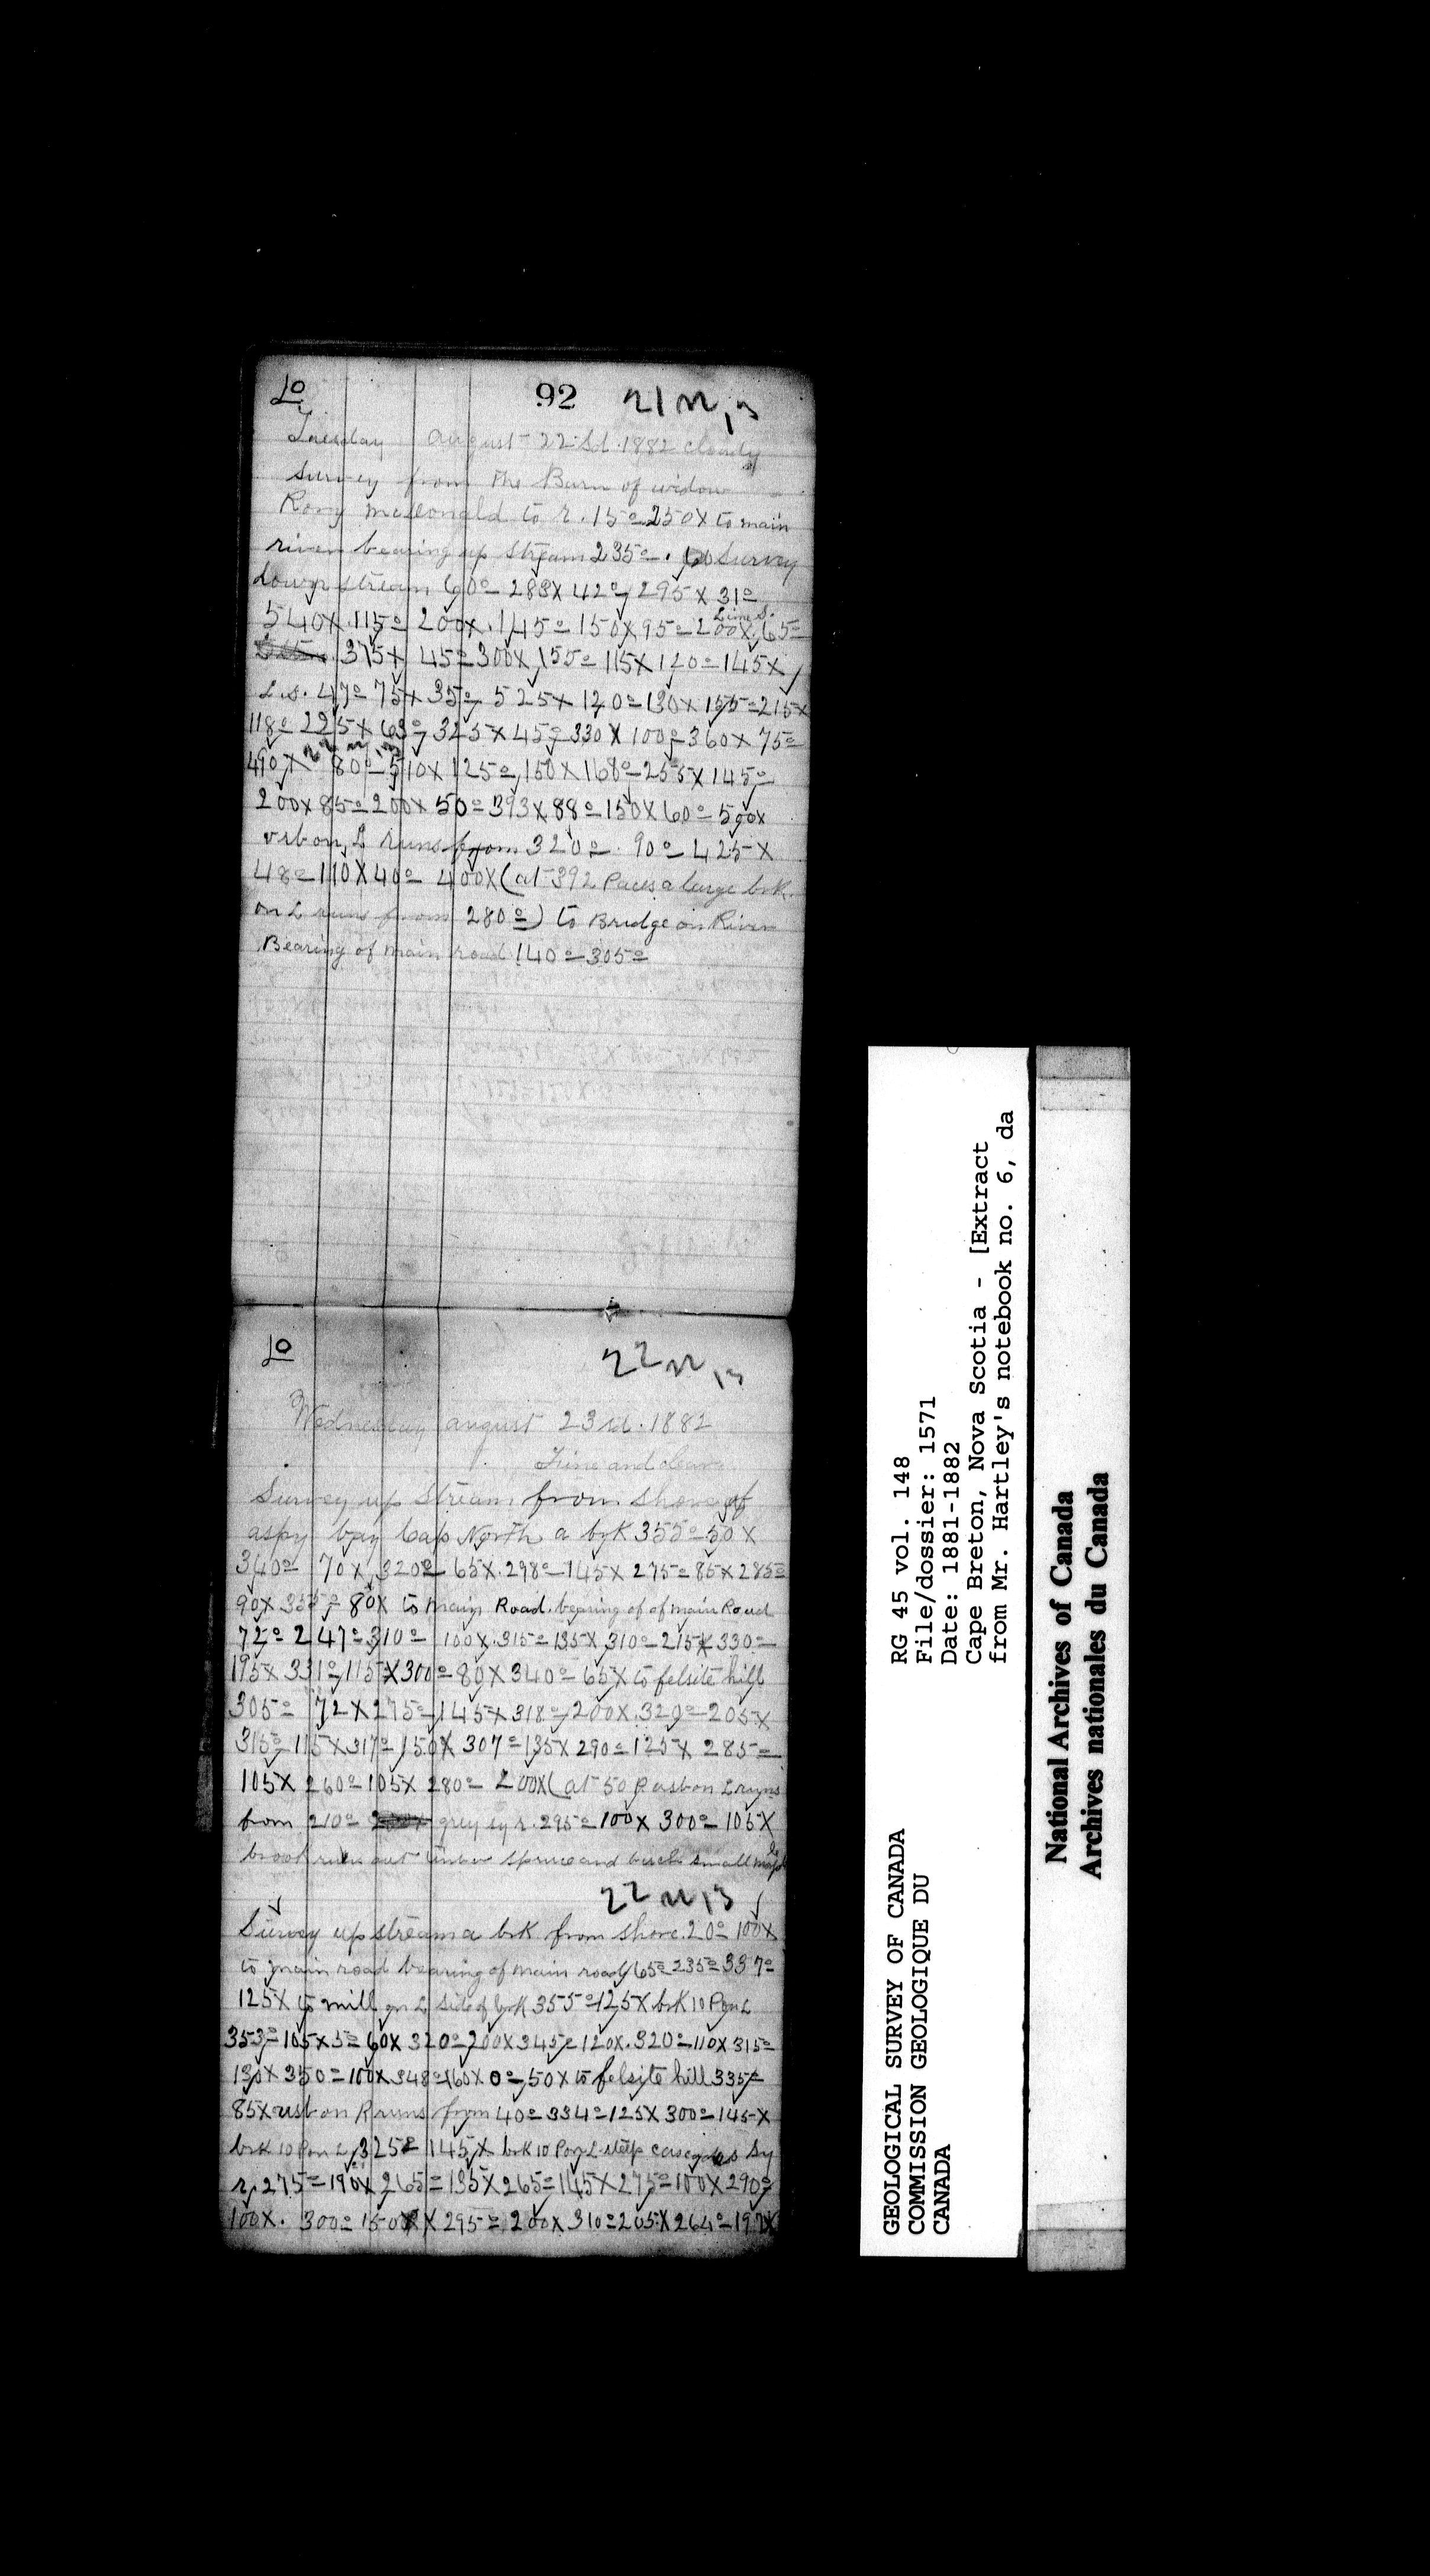 Lo 92 21 N, 13
Tuesday august 22nd. 1882 cloudy
survey from the Barn of widow
Rory mcdonald to r. 15° 250X to main
river bearing up stream 235°. Survey
down stream 60° 288X 42° 295X 31°
540X. 115° 200X. 145° 150X 95° 200X 65°
Lime S.
375X 45° 300X 155° 115X 120° 145X
L.s. 47° 75X 35° 525X 120° 130X 155° 215X
118° 225X 63° 325X 45° 330X 100° 360X 75°
490X 80° 510X 125° 150X 168° 255X 145°
200X 85° 200X 50° 393X 88° 150X 60° 590X
vsb on L runs from 320°. 90° 425X
48° 110X 40° 400X (at 392 Paces a large brk
on L runs from 280°) to Bridge on River
Bearing of main road 140° 305°
Lo 22 N, 13
Wednesday august 23rd. 1882
Fine and clear
Survey up Stream from shore of
aspy bay Cap North a brk 355° 50X
340° 70X 320° 65X. 298° 145X 275° 85X 285°
90X 335° 80X to main Road. bearing of of main Road
72° 247° 310° 100X. 315° 135X 310° 215X 330°
195X 331° 115X 300° 80X 340° 65X to felsite hill
305° 72X 275° 145X 318° 200X. 320° 205X
315° 115X 317° 150X 307° 135X 290° 125X 285°
105X 260° 105X 280° 200X (at 50 P asb on L runs
from 210° grey sy r. 295° 100X 300° 105X
brook runs out timber spruce and birch small maple
22 N 13
Survey up stream a brk from shore. 20° 100X
to main road bearing of main road 65° 235° 337°
125X to mill on L side of brk 355° 125X brk 10 P on L
353° 105X 5° 60X 320° 200X 345° 120X. 320° 110X 315°
130X 350° 100X 348° 160X 0° 50X to felsite hill 335°
85X vsb on R runs from 40° 334° 125X 300° 145X
brk 10 P on L 325° 145X brk 10 P on L steep cascades Sy
r, 275° 190X 265° 135X 265° 145X 275° 100X 290°
100X. 300° 150X X 295° 200X 310° 205X 264° 197X
GEOLOGICAL SURVEY OF CANADA
COMMISSION GEOLOGIQUE DU
CANADA
RG 45 vol. 148
File/dossier: 1571
Date: 1881-1882
Cape Breton, Nova Scotia - [Extract
from Mr. Hartley's notebook no. 6, da
National Archives of Canada
Archives nationales du Canada